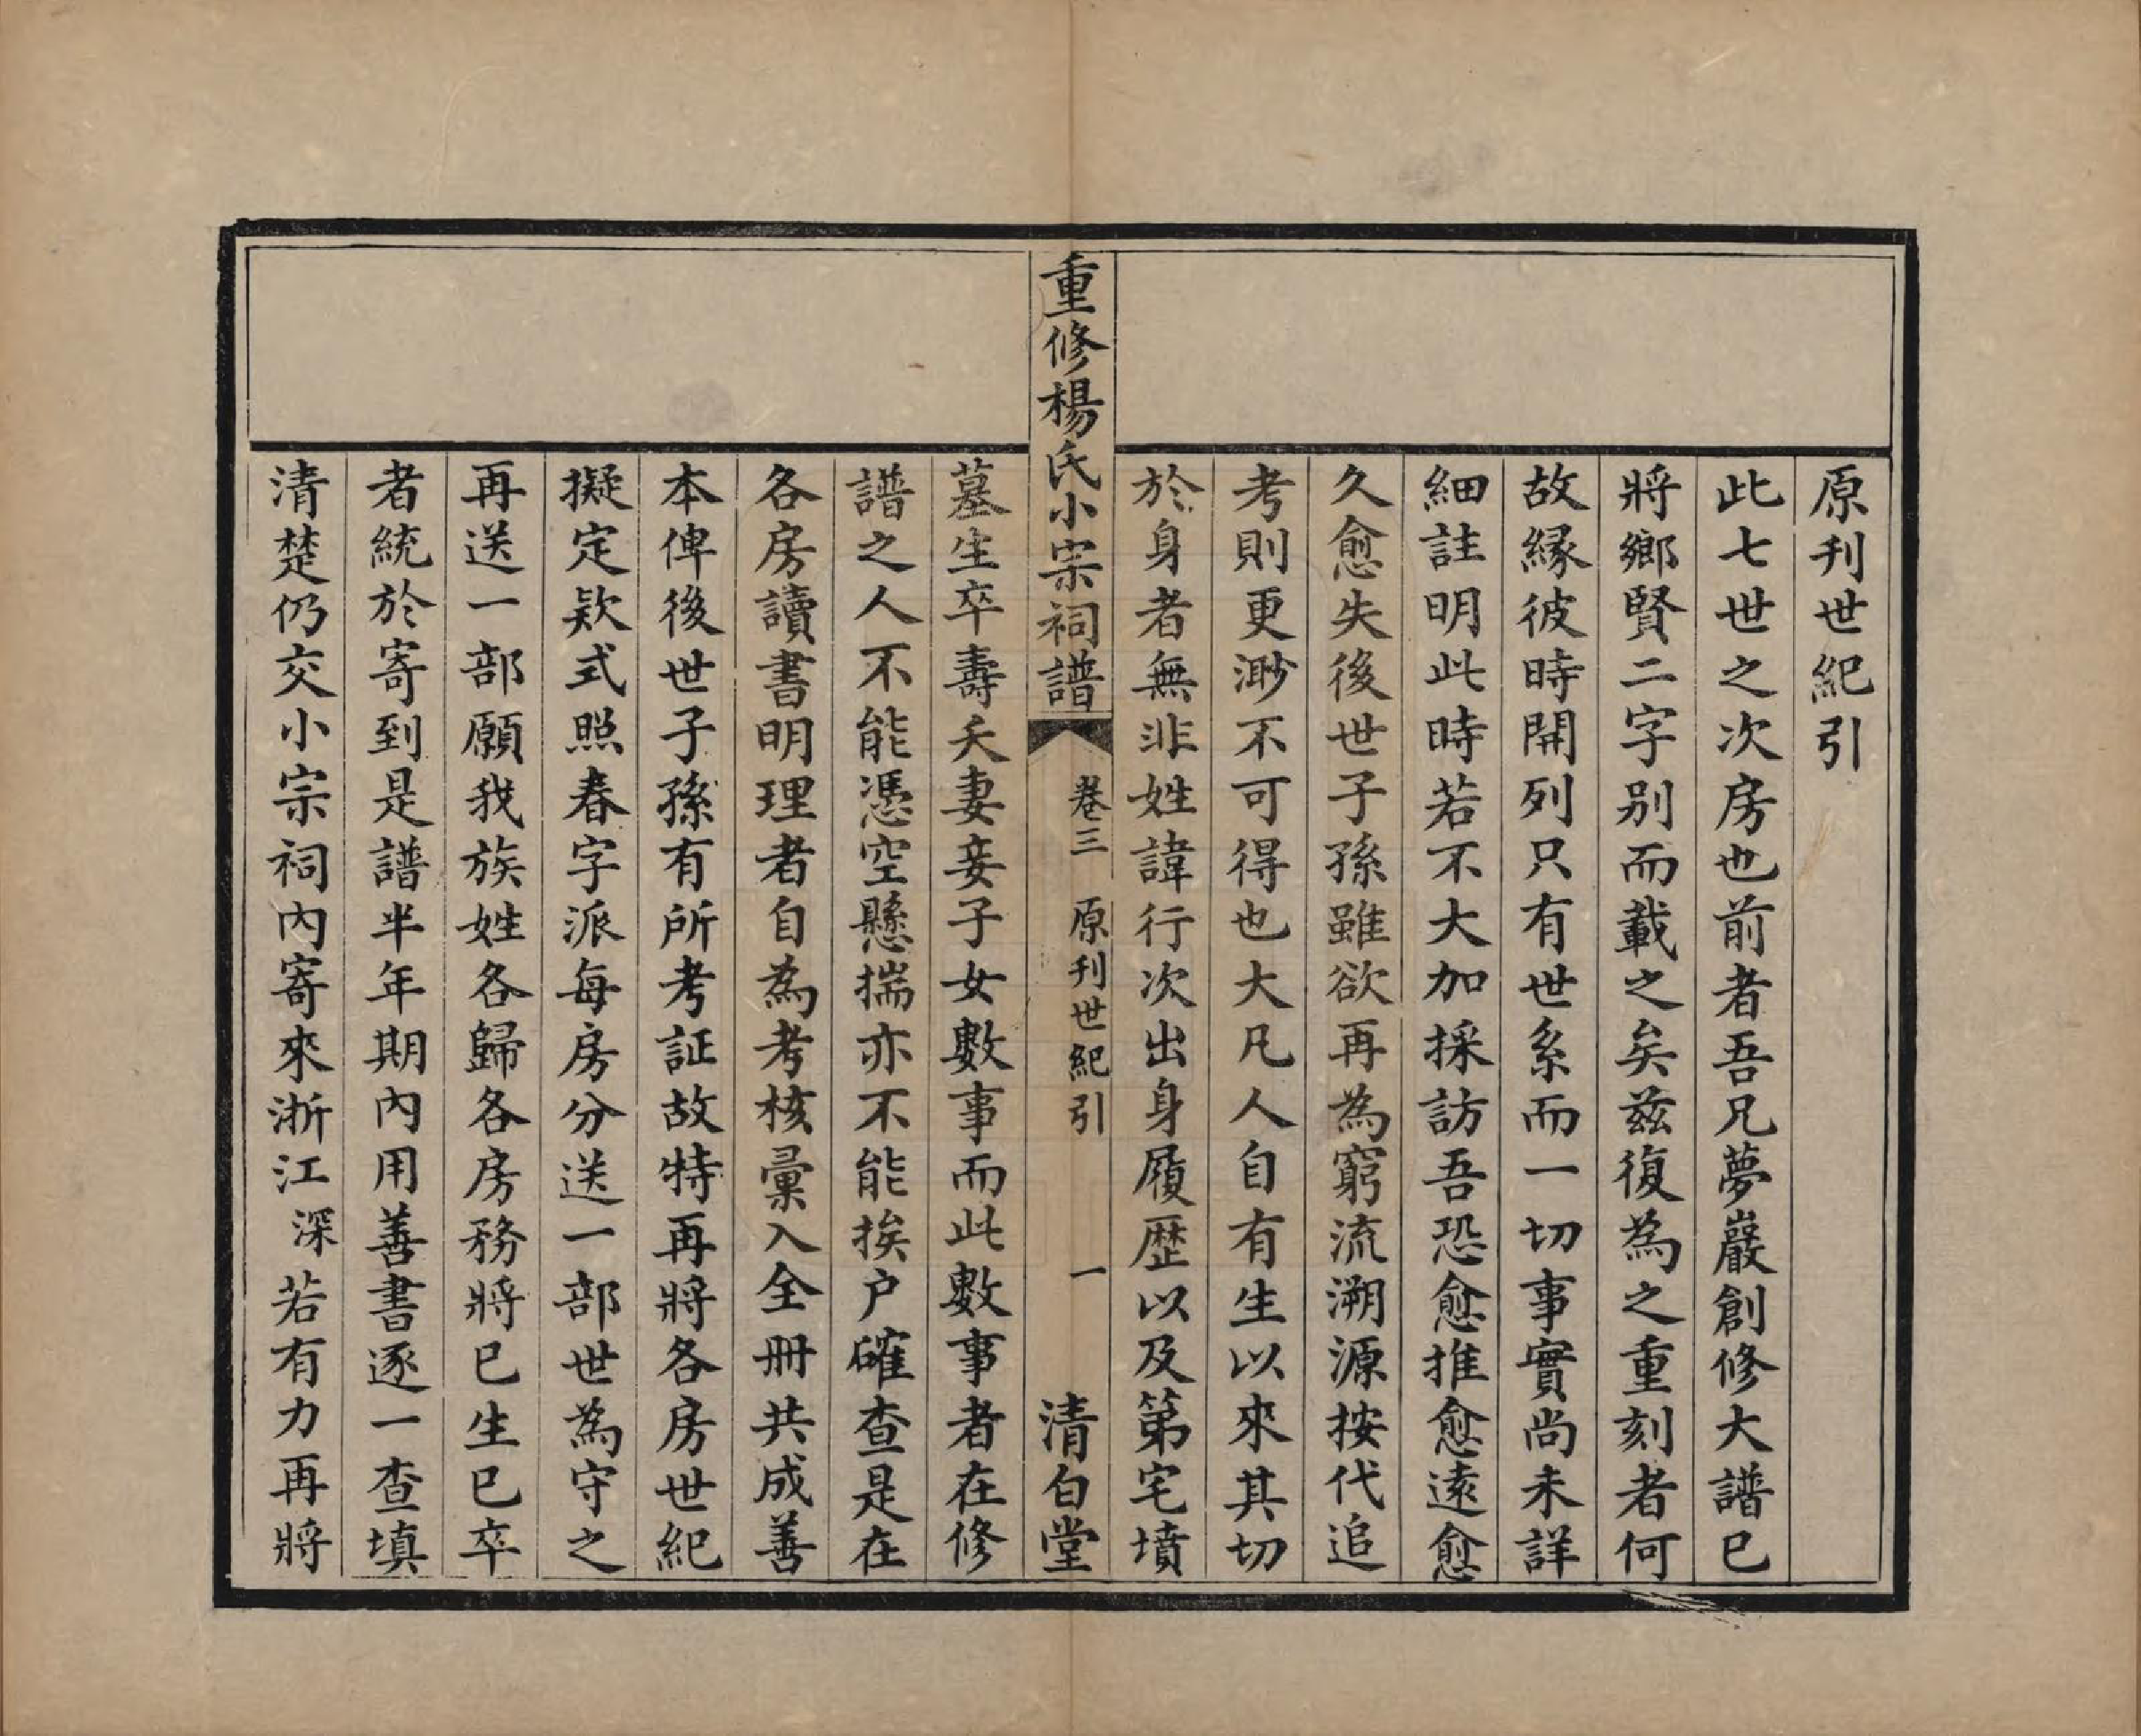 原刊世紀引
此七世之次房也前者吾兄夢巖創修大譜已
將鄉賢二字别而載之矣兹復為之重刻者何
故緣彼時開列只有世系而一切事實尚未詳
細註明此時若不大加採訪吾恐愈推愈遠愈
久愈失後世子孫雖欲再為窮流溯源按代追
考則更渺不可得也大凡人自有生以來其切
於身者無非姓諱行次出身履歷以及第宅墳
重修楊氏小宗祠譜
卷三
原刊世紀引
一
清白堂
墓生卒壽夭妻妾子女數事而此數事者在修
譜之人不能憑空懸揣亦不能挨户確查是在
各房讀書明理者自為考核彙入全冊共成善
本俾後世子孫有所考証故特再將各房世紀
擬定欵式照春字派每房分送一部世為守之
再送一部願我族姓各歸各房務將已生已卒
者統於寄到是譜半年期內用善書逐一查填
清楚仍交小宗祠內寄來浙江深若有力再將